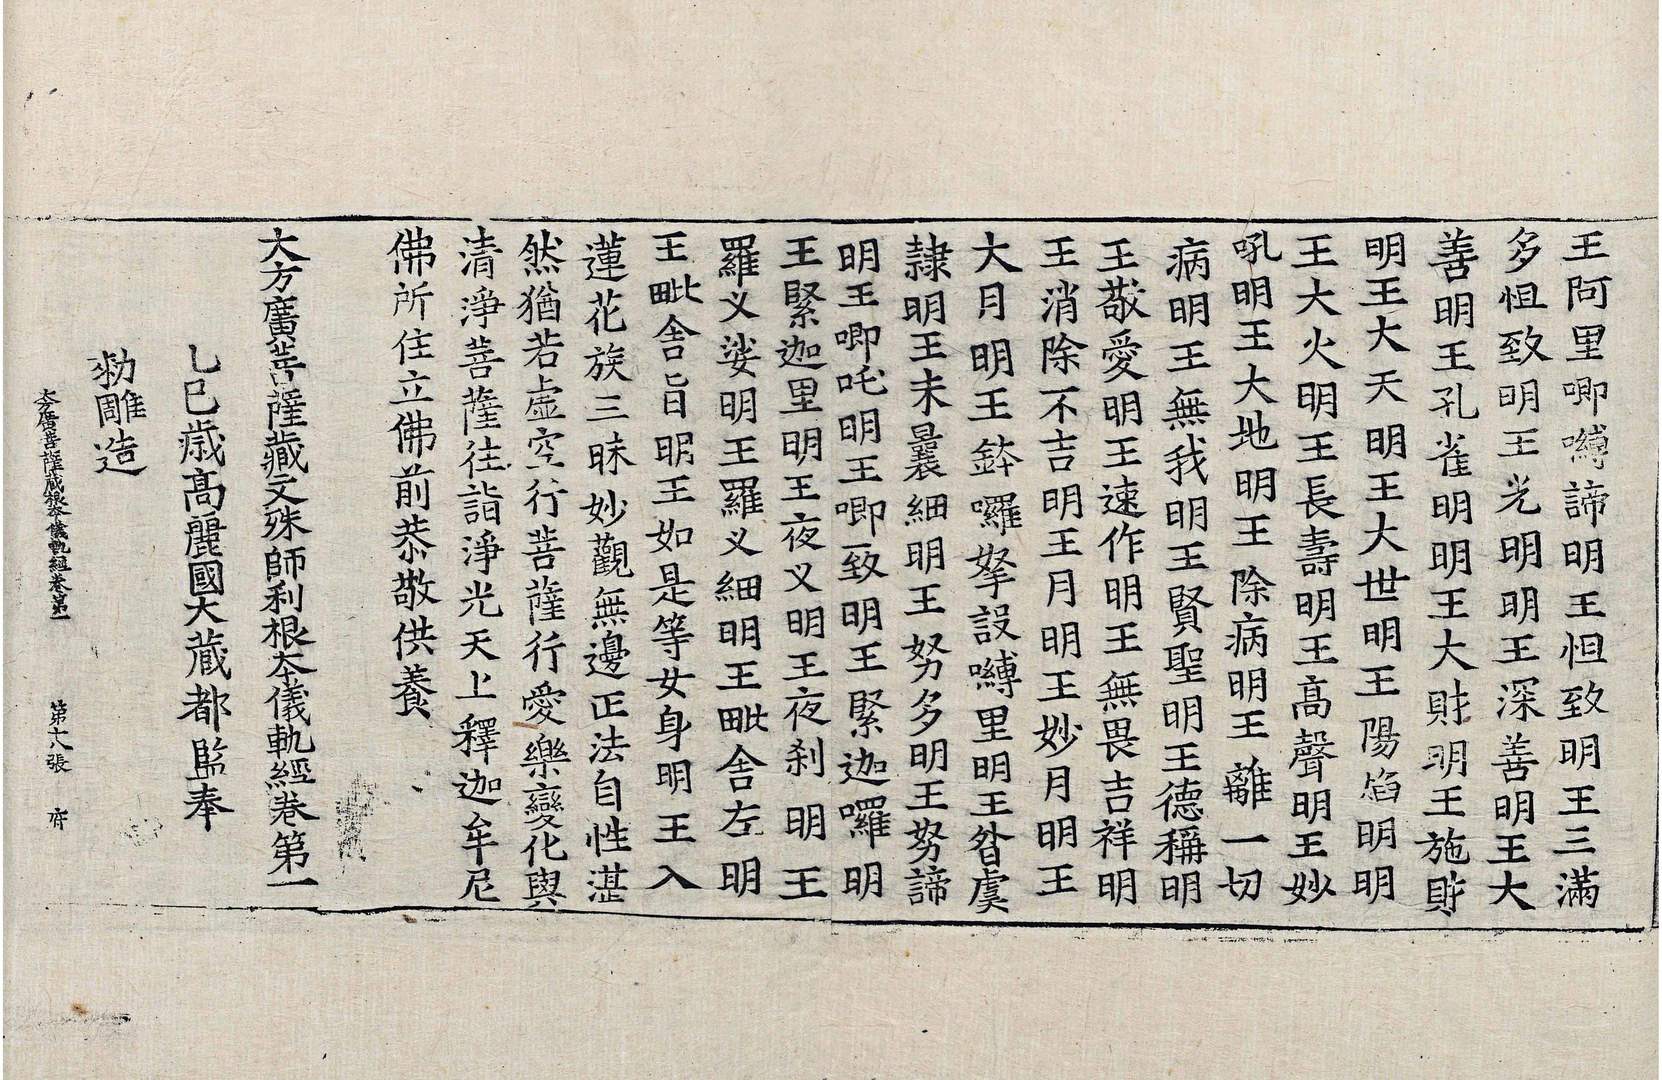 王阿里唧嚩諦明王怛致明王三滿
多怛致明王光明明王深善明王大
善明王孔雀明明王大財明王施財
明王大天明王大世明王陽焰明明
王大火明王長壽明王高聲明王妙
吼明王大地明王除病明王離一切
病明王無我明王賢聖明王德稱明
王敬愛明王速作明王無畏吉祥明
王消除不吉明王月明王妙月明王
大月明王鉢囉拏設嚩里明王昝虞
隷明王末曩細明王努多明王努諦
明王唧吒明王唧致明王緊迦囉明
王緊迦里明王夜义明王夜刹明王
羅义娑明王羅义細明王毗舍左明
王毗舍旨明王如是等女身明王入
蓮花族三昧妙觀無邊正法自性湛
然猶若虛空行菩薩行愛樂變化與
清淨菩薩往詣淨光天上釋迦牟尼
佛所住立佛前恭敬供養
大方廣菩薩藏文殊師利根本儀軌經卷第一
乙巳歲高麗國大藏都監奉
勑雕造
大方廣菩薩藏根本儀軌經卷第一 第十八張